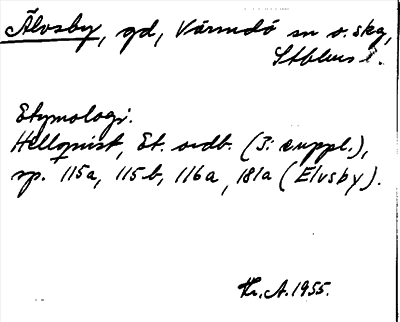 Älvsby, gd, Värmdö sn o. skg,
Sthlms l.
Etymologi.
Hellquist, Et. ordb. (I: suppl.),
sp. 115a, 115b, 116a, 181a (Elvsby).
Hr. A. 1955.